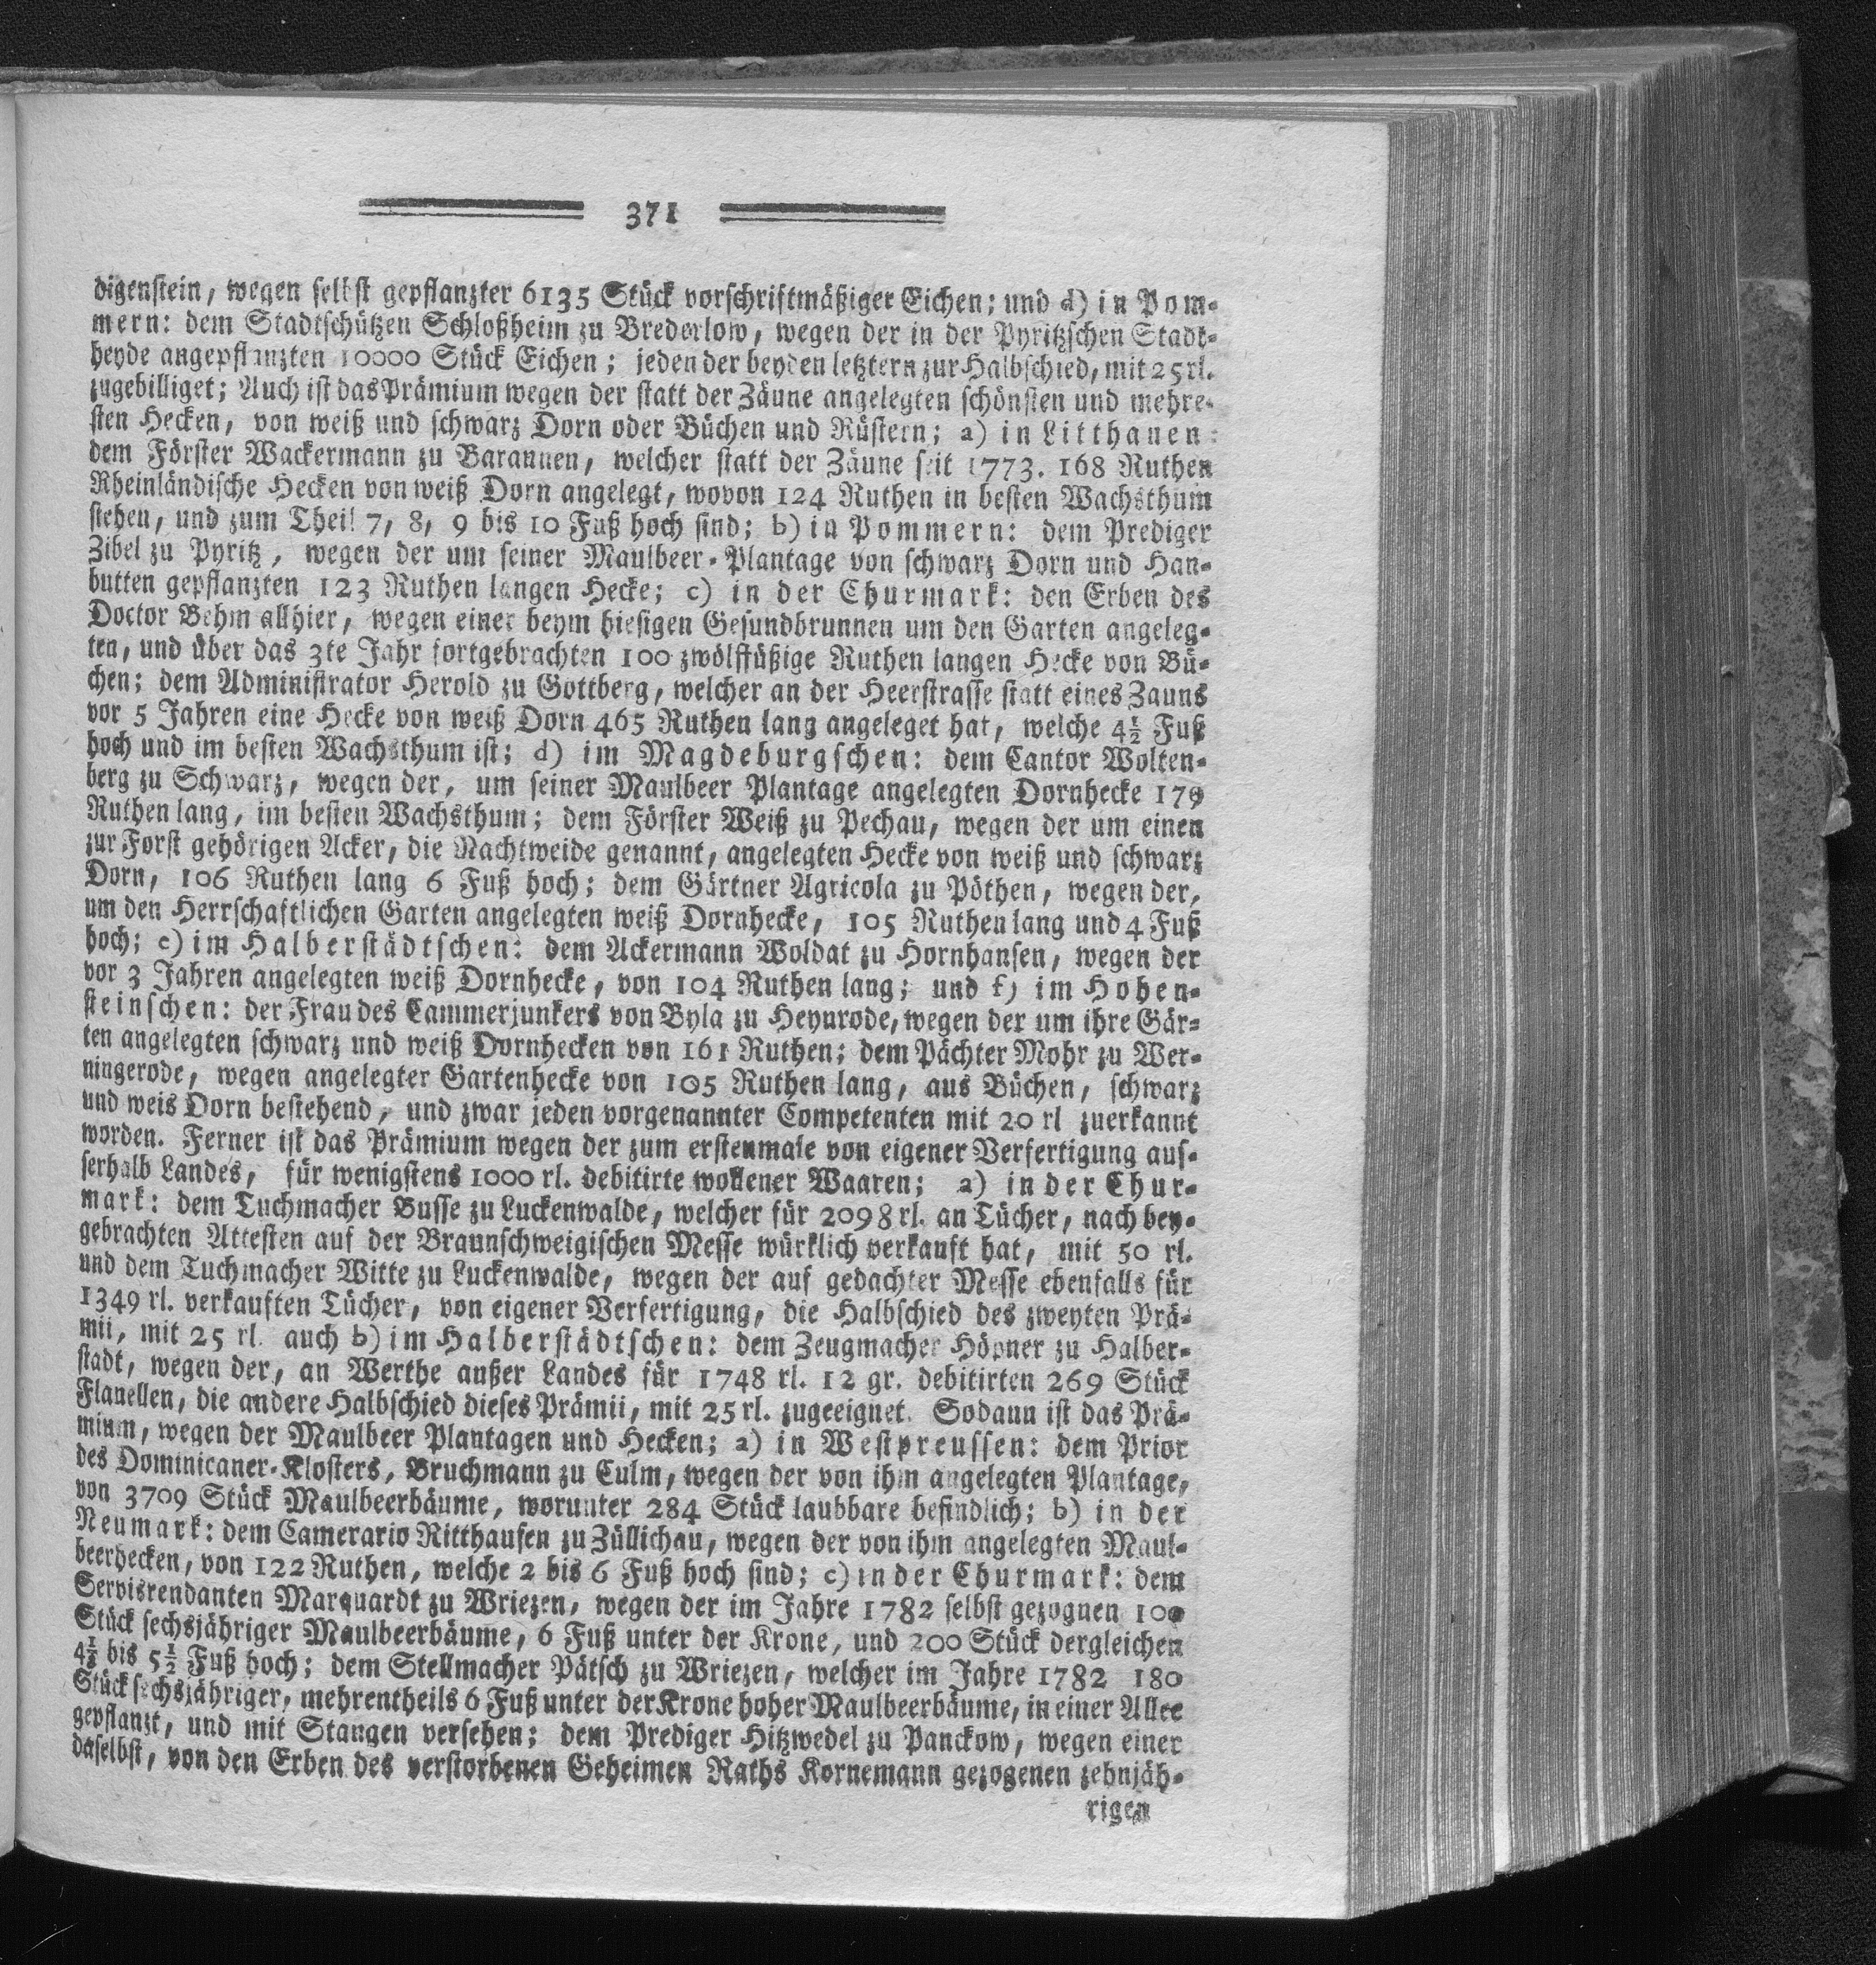 371
digenstein, wegen selbst gepflanzter 6135 Stück vorschriftmäßiger Eichen; und d) in Pom-
mern: dem Stadtschützen Schloßheim zu Brederlow, wegen der in der Pyritzschen Stadt-
heyde angepflanzten 10000 Stück Eichen; jeden der beyden letztern zur Halbschied, mit 25 rl.
zugebilliget; Auch ist das Prämium wegen der statt der Zäune angelegten schönsten und mehre-
sten Hecken, von weiß und schwarz Dorn oder Büchen und Rüstern; a) in Litthauen:
dem Förster Wackermann zu Barannen, welcher statt der Zäune seit 1773. 168 Ruthen
Rheinländische Hecken von weiß Dorn angelegt, wovon 124 Ruthen in besten Wachsthum
stehen, und zum Theil 7, 8, 9 bis 10 Fuß hoch sind; b) in Pommern: dem Prediger
Zibel zu Pyritz, wegen der um seiner Maulbeer-Plantage von schwarz Dorn und Han-
butten gepflanzten 123 Ruthen langen Hecke; c) in der Churmark: den Erben des
Doctor Behm allhier, wegen einer beym hiesigen Gesundbrunnen um den Garten angeleg-
ten, und über das 3te Jahr fortgebrachten 100 zwölffüßige Ruthen langen Hecke von Bü-
chen; dem Administrator Herold zu Gottberg, welcher an der Heerstrasse statt eines Zauns
vor 5 Jahren eine Hecke von weiß Dorn 465 Ruthen lang angeleget hat, welche 4½ Fuß
hoch und im besten Wachsthum ist; d) im Magdeburgschen: dem Cantor Wolten-
berg zu Schwarz, wegen der, um seiner Maulbeer Plantage angelegten Dornhecke 179
Ruthen lang, im besten Wachsthum; dem Förster Weiß zu Pechau, wegen der um einen
zur Forst gehörigen Acker, die Nachtweide genannt, angelegten Hecke von weiß und schwarz
Dorn, 106 Ruthen lang 6 Fuß hoch; dem Gärtner Agricola zu Pöthen, wegen der,
um den Herrschaftlichen Garten angelegten weiß Dornhecke, 105 Ruthen lang und 4 Fuß
hoch; e) im Halberstädtschen: dem Ackermann Woldat zu Hornhausen, wegen der
vor 3 Jahren angelegten weiß Dornhecke, von 104 Ruthen lang; und f) im Hohen-
steinschen: der Frau des Cammerjunkers von Byla zu Heynrode, wegen der um ihre Gär-
ten angelegten schwarz und weiß Dornhecken von 161 Ruthen; dem Pächter Mohr zu Wer-
ningerode, wegen angelegter Gartenhecke von 105 Ruthen lang, aus Büchen, schwarz
und weis Dorn bestehend, und zwar jeden vorgenannter Competenten mit 20 rl zuerkannt
worden. Ferner ist das Prämium wegen der zum erstenmale von eigener Verfertigung aus-
serhalb Landes, für wenigstens 1000 rl. debitirte wollener Waaren; a) in der Chur-
mark: dem Tuchmacher Busse zu Luckenwalde, welcher für 2098 rl. an Tücher, nach bey-
gebrachten Attesten auf der Braunschweigischen Messe würklich verkauft hat, mit 50 rl.
und dem Tuchmacher Witte zu Luckenwalde, wegen der auf gedachter Messe ebenfalls für
1349 rl. verkauften Tücher, von eigener Verfertigung, die Halbschied des zweyten Prä-
mii, mit 25 rl. auch b) im Halberstädtschen: dem Zeugmacher Höpner zu Halber-
stadt, wegen der, an Werthe außer Landes für 1748 rl. 12 gr. debitirten 269 Stück
Flanellen, die andere Halbschied dieses Prämii, mit 25 rl. zugeeignet. Sodann ist das Prä-
mium, wegen der Maulbeer Plantagen und Hecken; a) in Westpreussen: dem Prior
des Dominicaner-Klosters, Bruchmann zu Culm, wegen der von ihm angelegten Plantage,
von 3709 Stück Maulbeerbäume, worunter 284 Stück laubbare befindlich; b) in der
Neumark: dem Camerario Ritthausen zu Züllichau, wegen der von ihm angelegten Maul-
beerhecken, von 122 Ruthen, welche 2 bis 6 Fuß hoch sind; c) in der Churmark: dem
Servisrendanten Marquardt zu Wriezen, wegen der im Jahre 1782 selbst gezognen 100
Stück sechsjähriger Maulbeerbäume, 6 Fuß unter der Krone, und 200 Stück dergleichen
4½ bis 5½ Fuß hoch; dem Stellmacher Pätsch zu Wriezen, welcher im Jahre 1782 180
Stück sechsjähriger, mehrentheils 6 Fuß unter der Krone hoher Maulbeerbäume, in einer Allee
gepflanzt, und mit Stangen versehen; dem Prediger Hitzwedel zu Panckow, wegen einer
daselbst, von den Erben des verstorbenen Geheimen Raths Kornemann gezogenen zehnjäh-
rigen